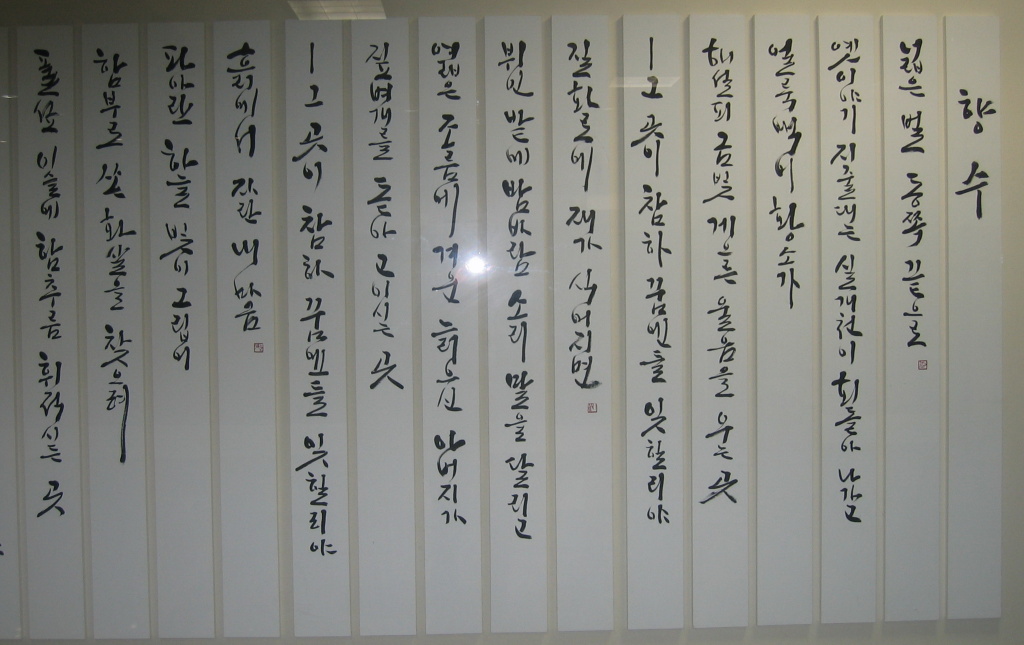 향수
넓은 벌 동쪽 끝으로
옛이야기 지줄대는 실개천이 회돌아 나가고
얼룩백이 황소가
해설피 금빛 게으른 울음을 우는 곳
ㅡ그 곳이 참하 꿈엔들 잊힐리야
질화로에 재가 식어지면
뷔인 밭에 밤바람 소리 말을 달리고
엷은 조름에 겨운 늙으신 아버지가
짚벼개를 돋아 고이시는 곳
ㅡ그 곳이 참하 꿈엔들 잊힐리야
흙에서 자란 내 마음
파아란 하늘 빛이 그립어
함부로 쏜 화살을 찾으려
풀섶 이슬에 함추름 휘적시든 곳